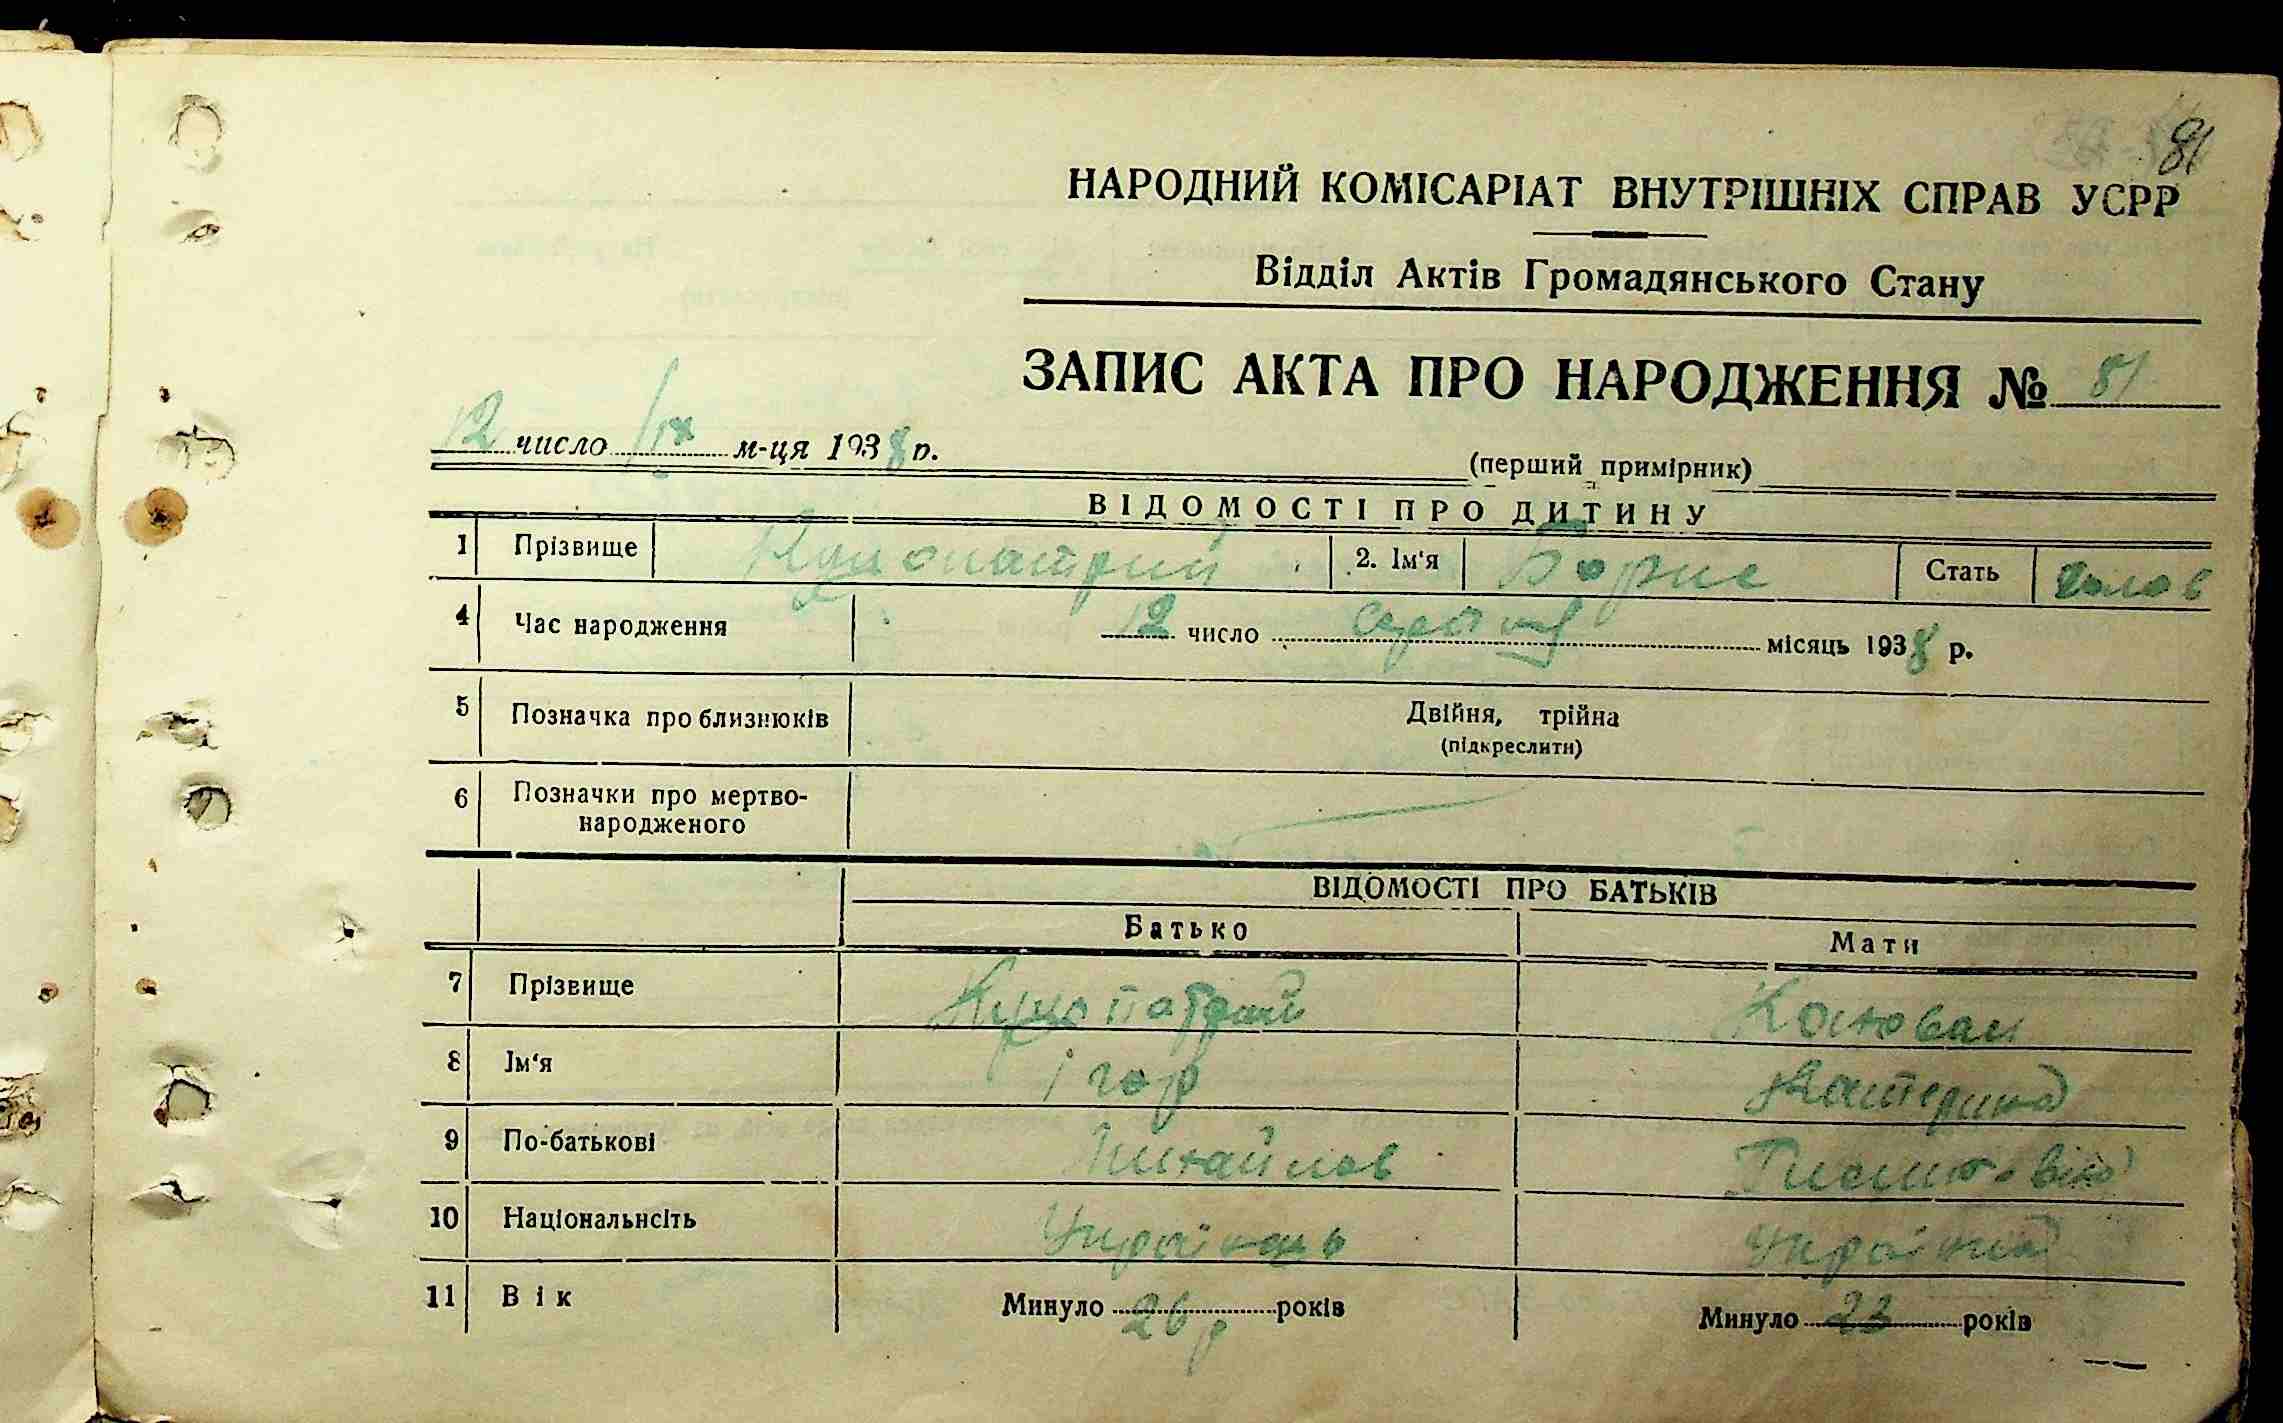 81
НАРОДНИЙ КОМІСАРІАТ ВНУТРІШНІХ СПРАВ УСРР
Відділ Актів Громадянського Стану
ЗАПИС АКТА ПРО НАРОДЖЕННЯ № 81
12 число IX м-ця 1938 р.
(перший примірник)
ВІДОМОСТІ ПРО ДИТИНУ
1 Прізвище 2. Ім'я Борис Стать чолов
4 Час народження 12 число Серпня місяць 1938 р.
5 Позначка про близнюків Двійня, трійна
(підкреслити)
6 Позначки про мертво-
народженого
ВІДОМОСТІ ПРО БАТЬКІВ
Батько Мати
7 Прізвище
8 Ім'я Ігор Катерина
9 По-батькові Михайлов
10 Національнсіть Українець Українка
11 Вік Минуло 26 р років Минуло 23 років